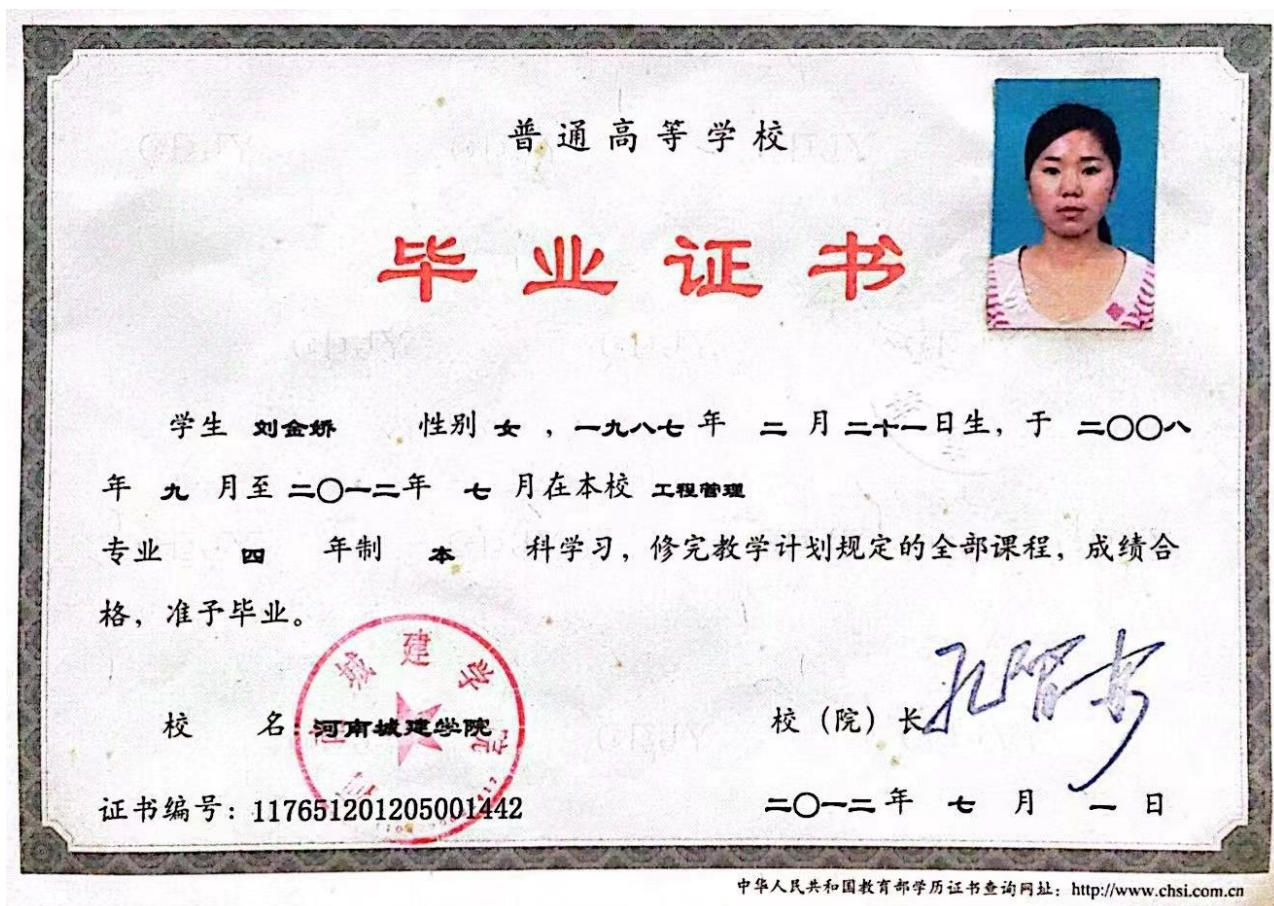 普通高等学校
毕业证书
学生 刘金娇 性别 女 ，一九八七 年 二 月 二十一 日生，于 二〇〇八
年 九 月至 二〇一二 年 七 月在本校 工程管理
专业 四 年制 本 科学习，修完教学计划规定的全部课程，成绩合
格，准予毕业。
城建学院
校 名：河南城建学院 校（院）长
证书编号：117651201205001442 二〇一二 年 七 月 一 日
中华人民共和国教育部学历证书查询网址：http://www.chsi.com.cn